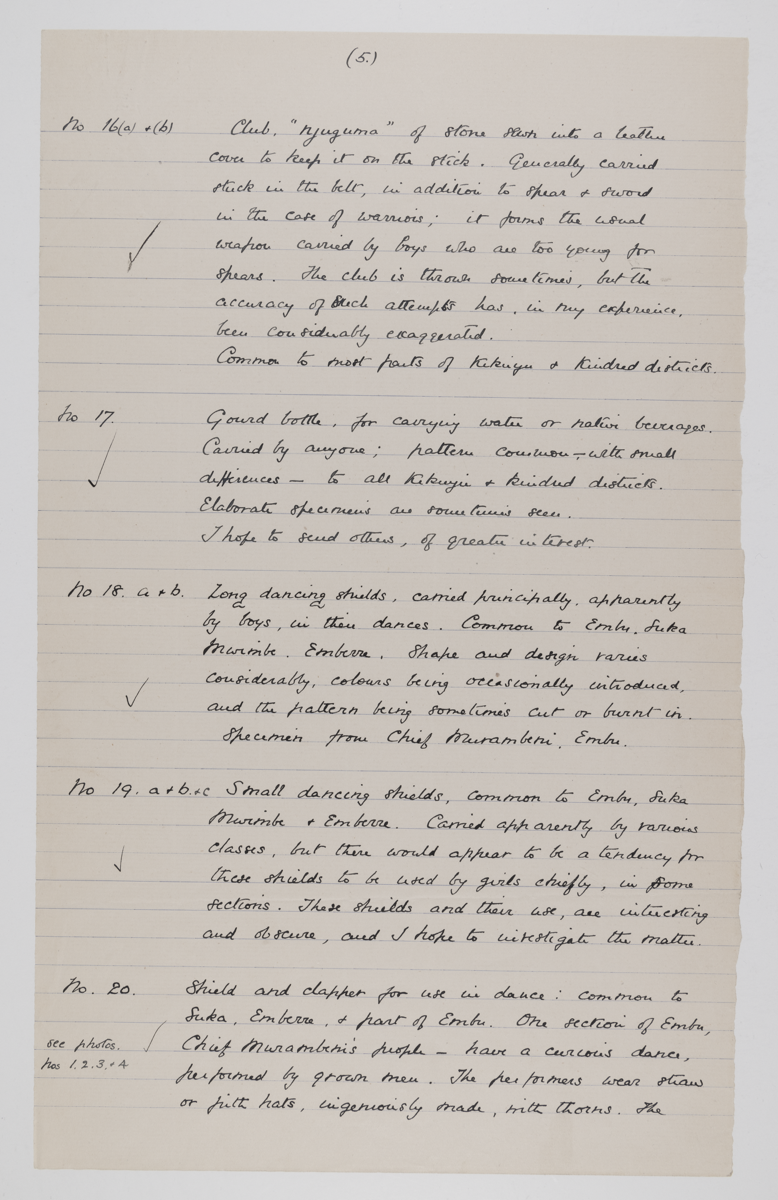 (5.)
No 16(a) + (b) Club, "njuguma" of stone sewn into a leather
cover to keep it on the stick. Generally carried
stuck in the belt, in addition to spear & sword
in the case of warriors; it forms the usual
weapon carried by boys who are too young for
spears. The club is thrown sometimes, but the
accuracy of such attempts has, in my experience,
been considerably exaggerated.
Common to most parts of Kikuyu & kindred districts.
No 17. Gourd bottle, for carrying water or native beverages.
Carried by anyone; pattern common – with small
differences – to all Kikuyu & kindred districts.
Elaborate specimens are sometimes seen.
I hope to send others, of greater interest.
No 18. a + b. Long dancing shields, carried principally, apparently
by boys, in their dances. Common to Embu, Suka
Mwimbe. Emberre. Shape and design varies
considerably, colours being occasionally introduced,
and the pattern being sometimes cut or burnt in.
Specimen from Chief Murambeni, Embu.
No 19. a + b. + c Small dancing shields, common to Embu, Suka
Mwimbe & Emberre. Carried apparently by various
classes, but there would appear to be a tendency for
these shields to be used by girls chiefly, in some
sections. These shields and their use, are interesting
and obscure, and I hope to investigate the matter.
No. 20. Shield and clapper for use in dance: common to
Suka, Emberre, & part of Embu. One section of Embu,
see photos. Chief Murambeni's people – have a curious dance,
Nos 1. 2. 3. + 4 performed by grown men. The performers wear straw
or pith hats, ingeniously made, with thorns. The